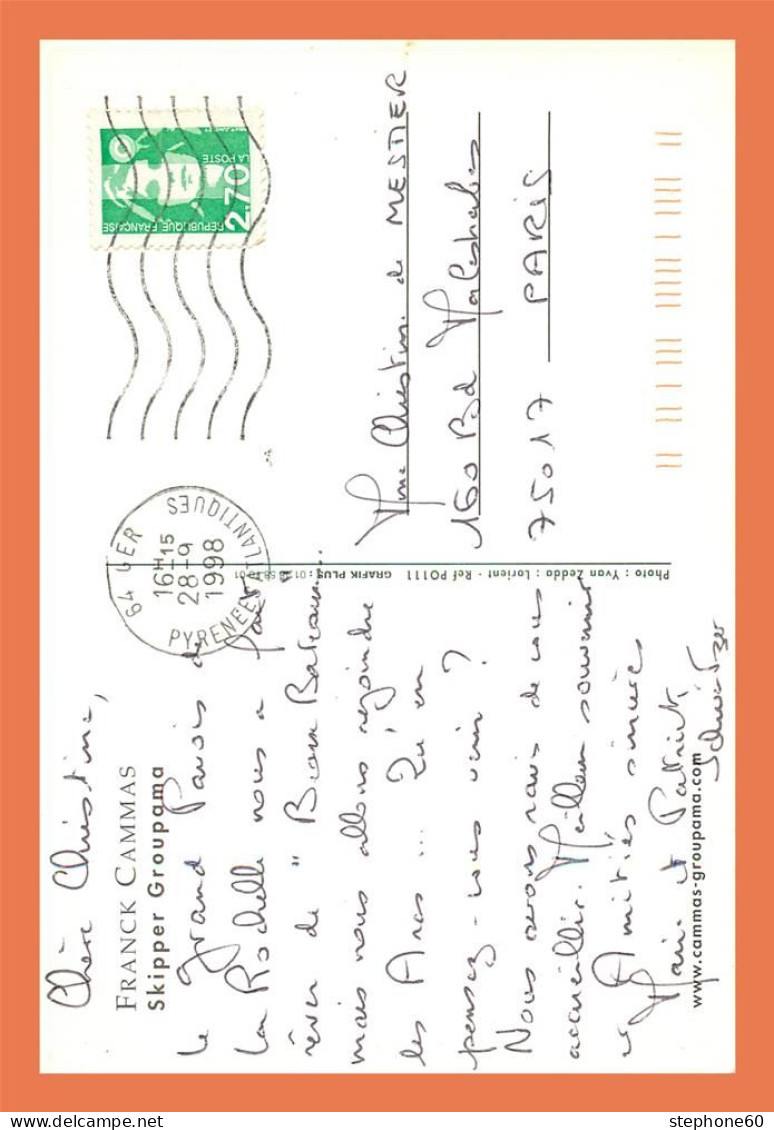 Chère Christine,
FRANCK CAMMAS
Skipper Groupama
Le Grand Pavois de
La Rochelle nous a fait
rêver de " Beaux Bateaux...
mais nous allons rejoindre
les Arcs ... Qu'en
pensez-vous venir ?
Nous serons ravis de vous
accueillir. Meilleur souvenir
et Amitiés sincères
Marie et Patrick
www.cammas-groupama.com
Photo : Yvan Zedda : Lorient - Ref PO111 GRAFIK PLUS :
64 GER
16H15
28-9
1998
PYRENEES ATLANTIQUES
2,70
REPUBLIQUE FRANÇAISE
LA POSTE
Mme Christine de MESTIER
160 Bd Malesherbes
75017 PARIS
stephone60